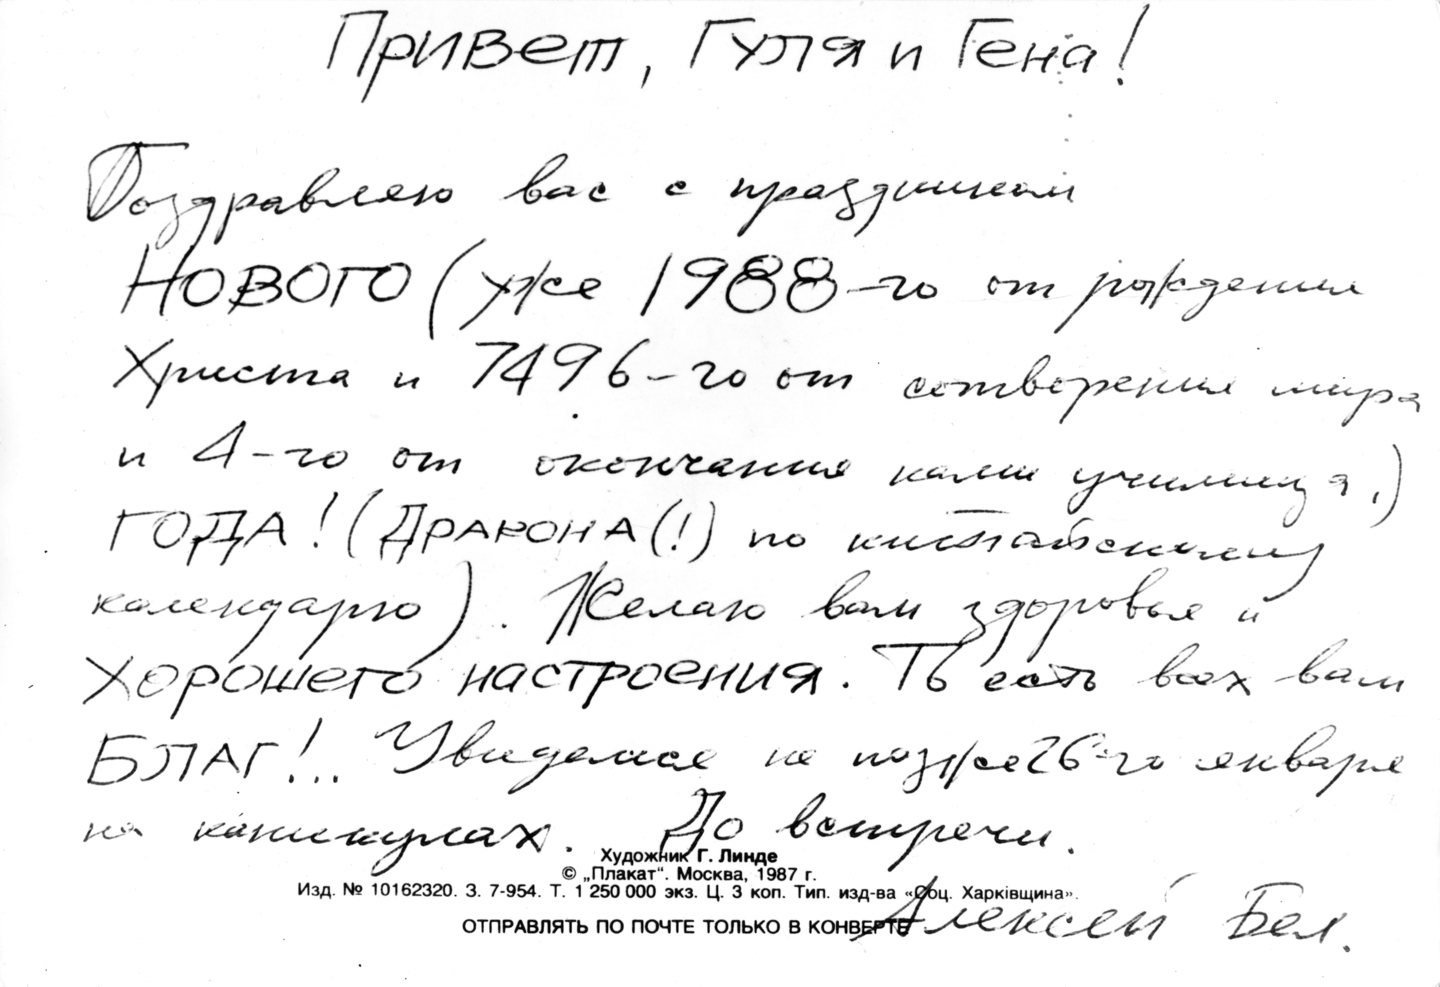 Привет, Гуля и Гена!
Поздравляю вас с праздником
НОВОГО (уже 1988-го от рождения
Христа и 7496-го от сотворения мира
и 4-го от окончания нами училища,)
ГОДА! (ДРАКОНА(!) по китайскому
календарю). Желаю вам здоровья и
хорошего настроения. То есть всех вам
БЛАГ!.. Увидемся не позже 26-го января
на каникулах. До встречи.
Художник Г. Линде
© „Плакат“. Москва, 1987 г.
Изд. № 10162320. З. 7-954. Т. 1 250 000 экз. Ц. 3 коп. Тип. изд-ва «Соц. Харкiвщина».
ОТПРАВЛЯТЬ ПО ПОЧТЕ ТОЛЬКО В КОНВЕРТЕ
Алексей Бел.